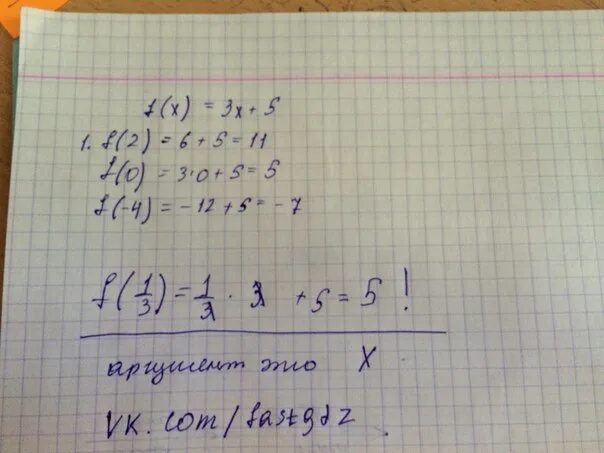 f(x) = 3x + 5
1. f(2) = 6 + 5 = 11
f(0) = 3·0 + 5 = 5
f(-4) = -12 + 5 = -7
f(1/3) = 1/3 · 3 + 5 = 5 !
аргумент это X
VK.com/fastgdz